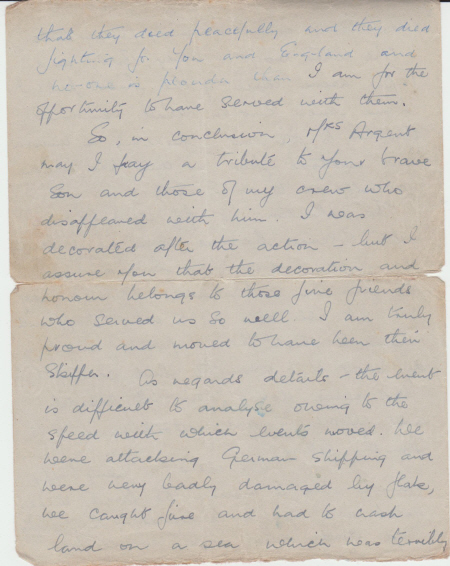 that they died peacefully and they died
fighting for you and England and
no-one is prouder than I am for the
opportunity to have served with them.
So, in conclusion, Mrs Argent
may I pay a tribute to your brave
Son and those of my crew who
disappeared with him. I was
decorated after the action - but I
assure you that the decoration and
honour belongs to those fine friends
who served us so well. I am truly
proud and moved to have been their
Skipper. As regards details - the event
is difficult to analyse owing to the
speed with which events moved. We
were attacking German shipping and
were very badly damaged by flak,
we caught fire and had to crash
land on a sea which was terribly